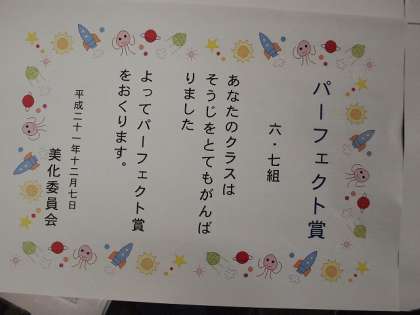 パーフェクト賞
六・七組
あなたのクラスは
そうじをとてもがんば
りました
よってパーフェクト賞
をおくります。
平成二十一年十二月七日
美化委員会